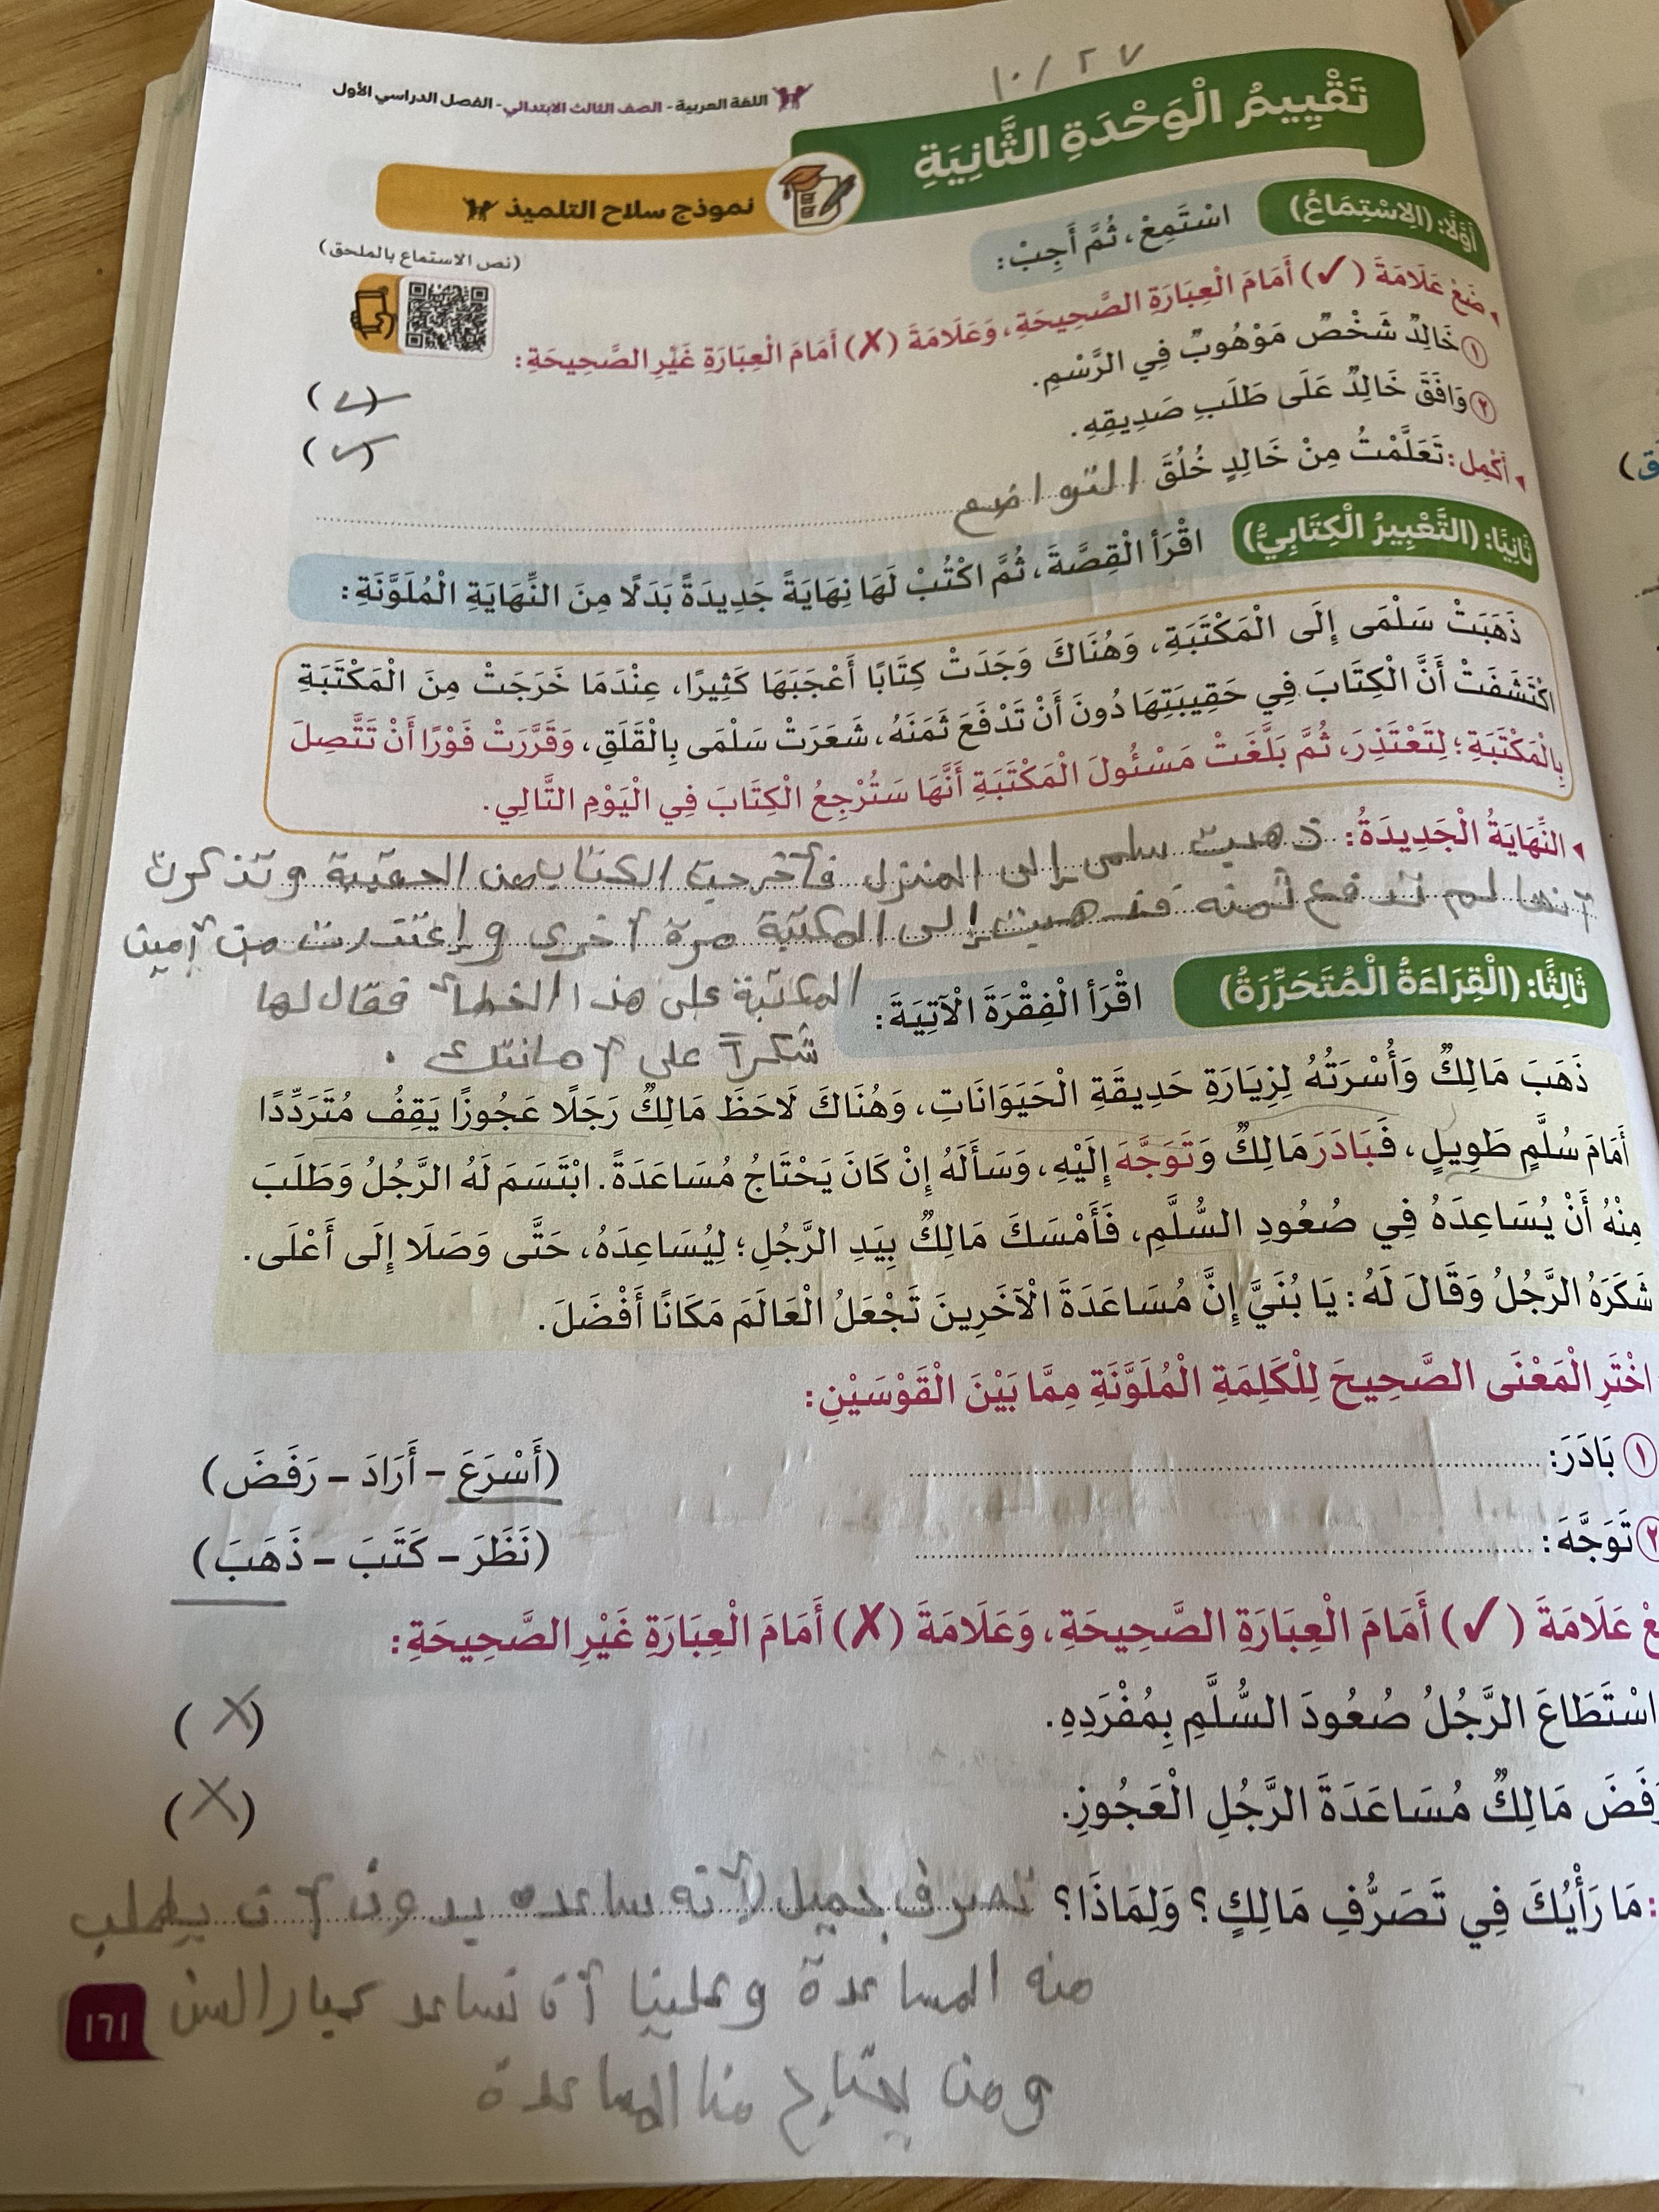 ١٠/٢٧
اللغة العربية - الصف الثالث الابتدائي - الفصل الدراسي الأول
تَقْيِيمُ الْوَحْدَةِ الثَّانِيَةِ
نموذج سلاح التلميذ
أَوَّلًا: (الِاسْتِمَاعُ) اسْتَمِعْ، ثُمَّ أَجِبْ:
(نص الاستماع بالملحق)
ضَعْ عَلَامَةَ (✓) أَمَامَ الْعِبَارَةِ الصَّحِيحَةِ، وَعَلَامَةَ (✗) أَمَامَ الْعِبَارَةِ غَيْرِ الصَّحِيحَةِ:
١ خَالِدٌ شَخْصٌ مَوْهُوبٌ فِي الرَّسْمِ. (✓)
٢ وَافَقَ خَالِدٌ عَلَى طَلَبِ صَدِيقِهِ. (✓)
أَكْمِل: تَعَلَّمْتُ مِنْ خَالِدٍ خُلُقَ التواضع
ثَانِيًا: (التَّعْبِيرُ الْكِتَابِيُّ) اقْرَأ الْقِصَّةَ، ثُمَّ اكْتُبْ لَهَا نِهَايَةً جَدِيدَةً بَدَلًا مِنَ النِّهَايَةِ الْمُلَوَّنَةِ:
ذَهَبَتْ سَلْمَى إِلَى الْمَكْتَبَةِ، وَهُنَاكَ وَجَدَتْ كِتَابًا أَعْجَبَهَا كَثِيرًا، عِنْدَمَا خَرَجَتْ مِنَ الْمَكْتَبَةِ
اكْتَشَفَتْ أَنَّ الْكِتَابَ فِي حَقِيبَتِهَا دُونَ أَنْ تَدْفَعَ ثَمَنَهُ، شَعَرَتْ سَلْمَى بِالْقَلَقِ، وَقَرَّرَتْ فَوْرًا أَنْ تَتَّصِلَ
بِالْمَكْتَبَةِ؛ لِتَعْتَذِرَ، ثُمَّ بَلَّغَتْ مَسْئُولَ الْمَكْتَبَةِ أَنَّهَا سَتُرْجِعُ الْكِتَابَ فِي الْيَوْمِ التَّالِي.
النِّهَايَةُ الْجَدِيدَةُ: ذهبت سلمى إلى المنزل فأخرجت الكتاب من الحقيبة وتذكرت
أنها لم تدفع ثمنه فذهبت إلى المكتبة مرة أخرى وإعتذرت من أمين
المكتبة على هذا الخطأ فقال لها
شكراً على أمانتك .
ثَالِثًا: (الْقِرَاءَةُ الْمُتَحَرِّرَةُ) اقْرَأ الْفِقْرَةَ الْآتِيَةَ:
ذَهَبَ مَالِكٌ وَأُسْرَتُهُ لِزِيَارَةِ حَدِيقَةِ الْحَيَوَانَاتِ، وَهُنَاكَ لَاحَظَ مَالِكٌ رَجُلًا عَجُوزًا يَقِفُ مُتَرَدِّدًا
أَمَامَ سُلَّمٍ طَوِيلٍ، فَبَادَرَ مَالِكٌ وَتَوَجَّهَ إِلَيْهِ، وَسَأَلَهُ إِنْ كَانَ يَحْتَاجُ مُسَاعَدَةً. ابْتَسَمَ لَهُ الرَّجُلُ وَطَلَبَ
مِنْهُ أَنْ يُسَاعِدَهُ فِي صُعُودِ السُّلَّمِ، فَأَمْسَكَ مَالِكٌ بِيَدِ الرَّجُلِ؛ لِيُسَاعِدَهُ، حَتَّى وَصَلَا إِلَى أَعْلَى.
شَكَرَهُ الرَّجُلُ وَقَالَ لَهُ: يَا بُنَيَّ إِنَّ مُسَاعَدَةَ الْآخَرِينَ تَجْعَلُ الْعَالَمَ مَكَانًا أَفْضَلَ.
اخْتَرِ الْمَعْنَى الصَّحِيحَ لِلْكَلِمَةِ الْمُلَوَّنَةِ مِمَّا بَيْنَ الْقَوْسَيْنِ:
١ بَادَرَ: (أَسْرَعَ - أَرَادَ - رَفَضَ)
٢ تَوَجَّهَ: (نَظَرَ - كَتَبَ - ذَهَبَ)
عْ عَلَامَةَ (✓) أَمَامَ الْعِبَارَةِ الصَّحِيحَةِ، وَعَلَامَةَ (✗) أَمَامَ الْعِبَارَةِ غَيْرِ الصَّحِيحَةِ:
اسْتَطَاعَ الرَّجُلُ صُعُودَ السُّلَّمِ بِمُفْرَدِهِ. (✗)
رَفَضَ مَالِكٌ مُسَاعَدَةَ الرَّجُلِ الْعَجُوزِ. (✗)
: مَا رَأْيُكَ فِي تَصَرُّفِ مَالِكٍ؟ وَلِمَاذَا؟ تصرف جميل لأنه ساعده بدون أن يطلب
منه المساعدة وعلينا أن نساعد كبار السن
ومن يحتاج منا المساعدة
١٦١